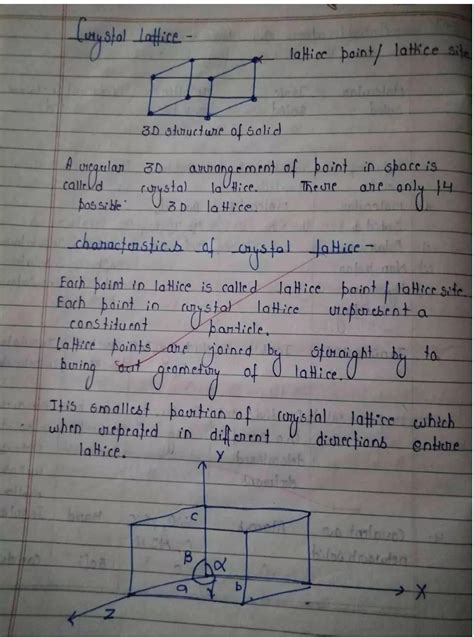 Crystal lattice -
lattice point/ lattice site
3D structure of solid
A regular 3D arrangement of point in space is
called crystal lattice. There are only 14
possible 3D lattice.
characterstics of crystal lattice -
Each point in lattice is called lattice point / lattice site
Each point in crystal lattice represent a
constituent particle.
Lattice points are joined by straight by to
bring out geometry of lattice.
It is smallest portion of crystal lattice which
when repeated in different directions entire
lattice.
Y
C
B α
a γ b
X
Z